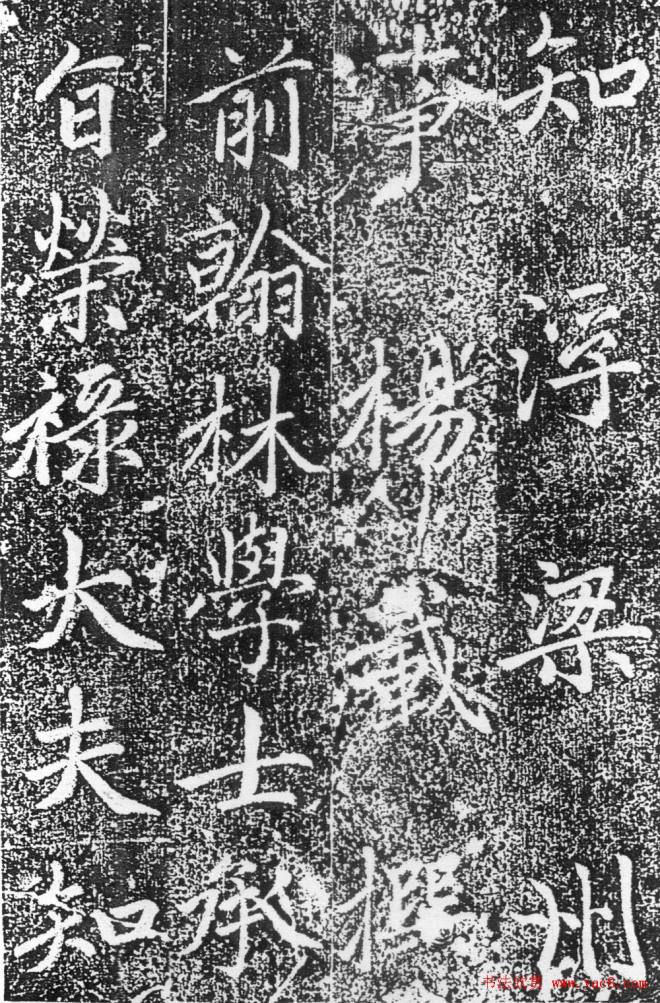 知浮梁州
事楊載撰
前翰林學士承
旨榮祿大夫知
书法欣赏 www.yac8.com